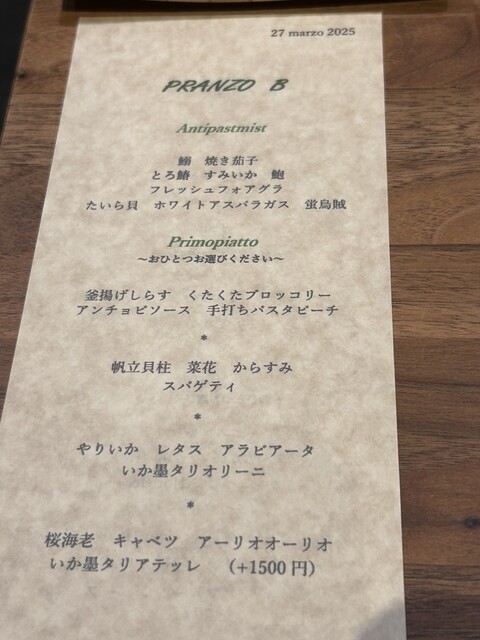 27 marzo 2025
PRANZO B
Antipastmist
鰤　焼き茄子
とろ鰆　すみいか　鮑
フレッシュフォアグラ
たいら貝　ホワイトアスパラガス　蛍烏賊
Primopiatto
～おひとつお選びください～
釜揚げしらす　くたくたブロッコリー
アンチョビソース　手打ちパスタピーチ
*
帆立貝柱　菜花　からすみ
スパゲティ
*
やりいか　レタス　アラビアータ
いか墨タリオリーニ
*
桜海老　キャベツ　アーリオオーリオ
いか墨タリアテッレ　（+1500 円）